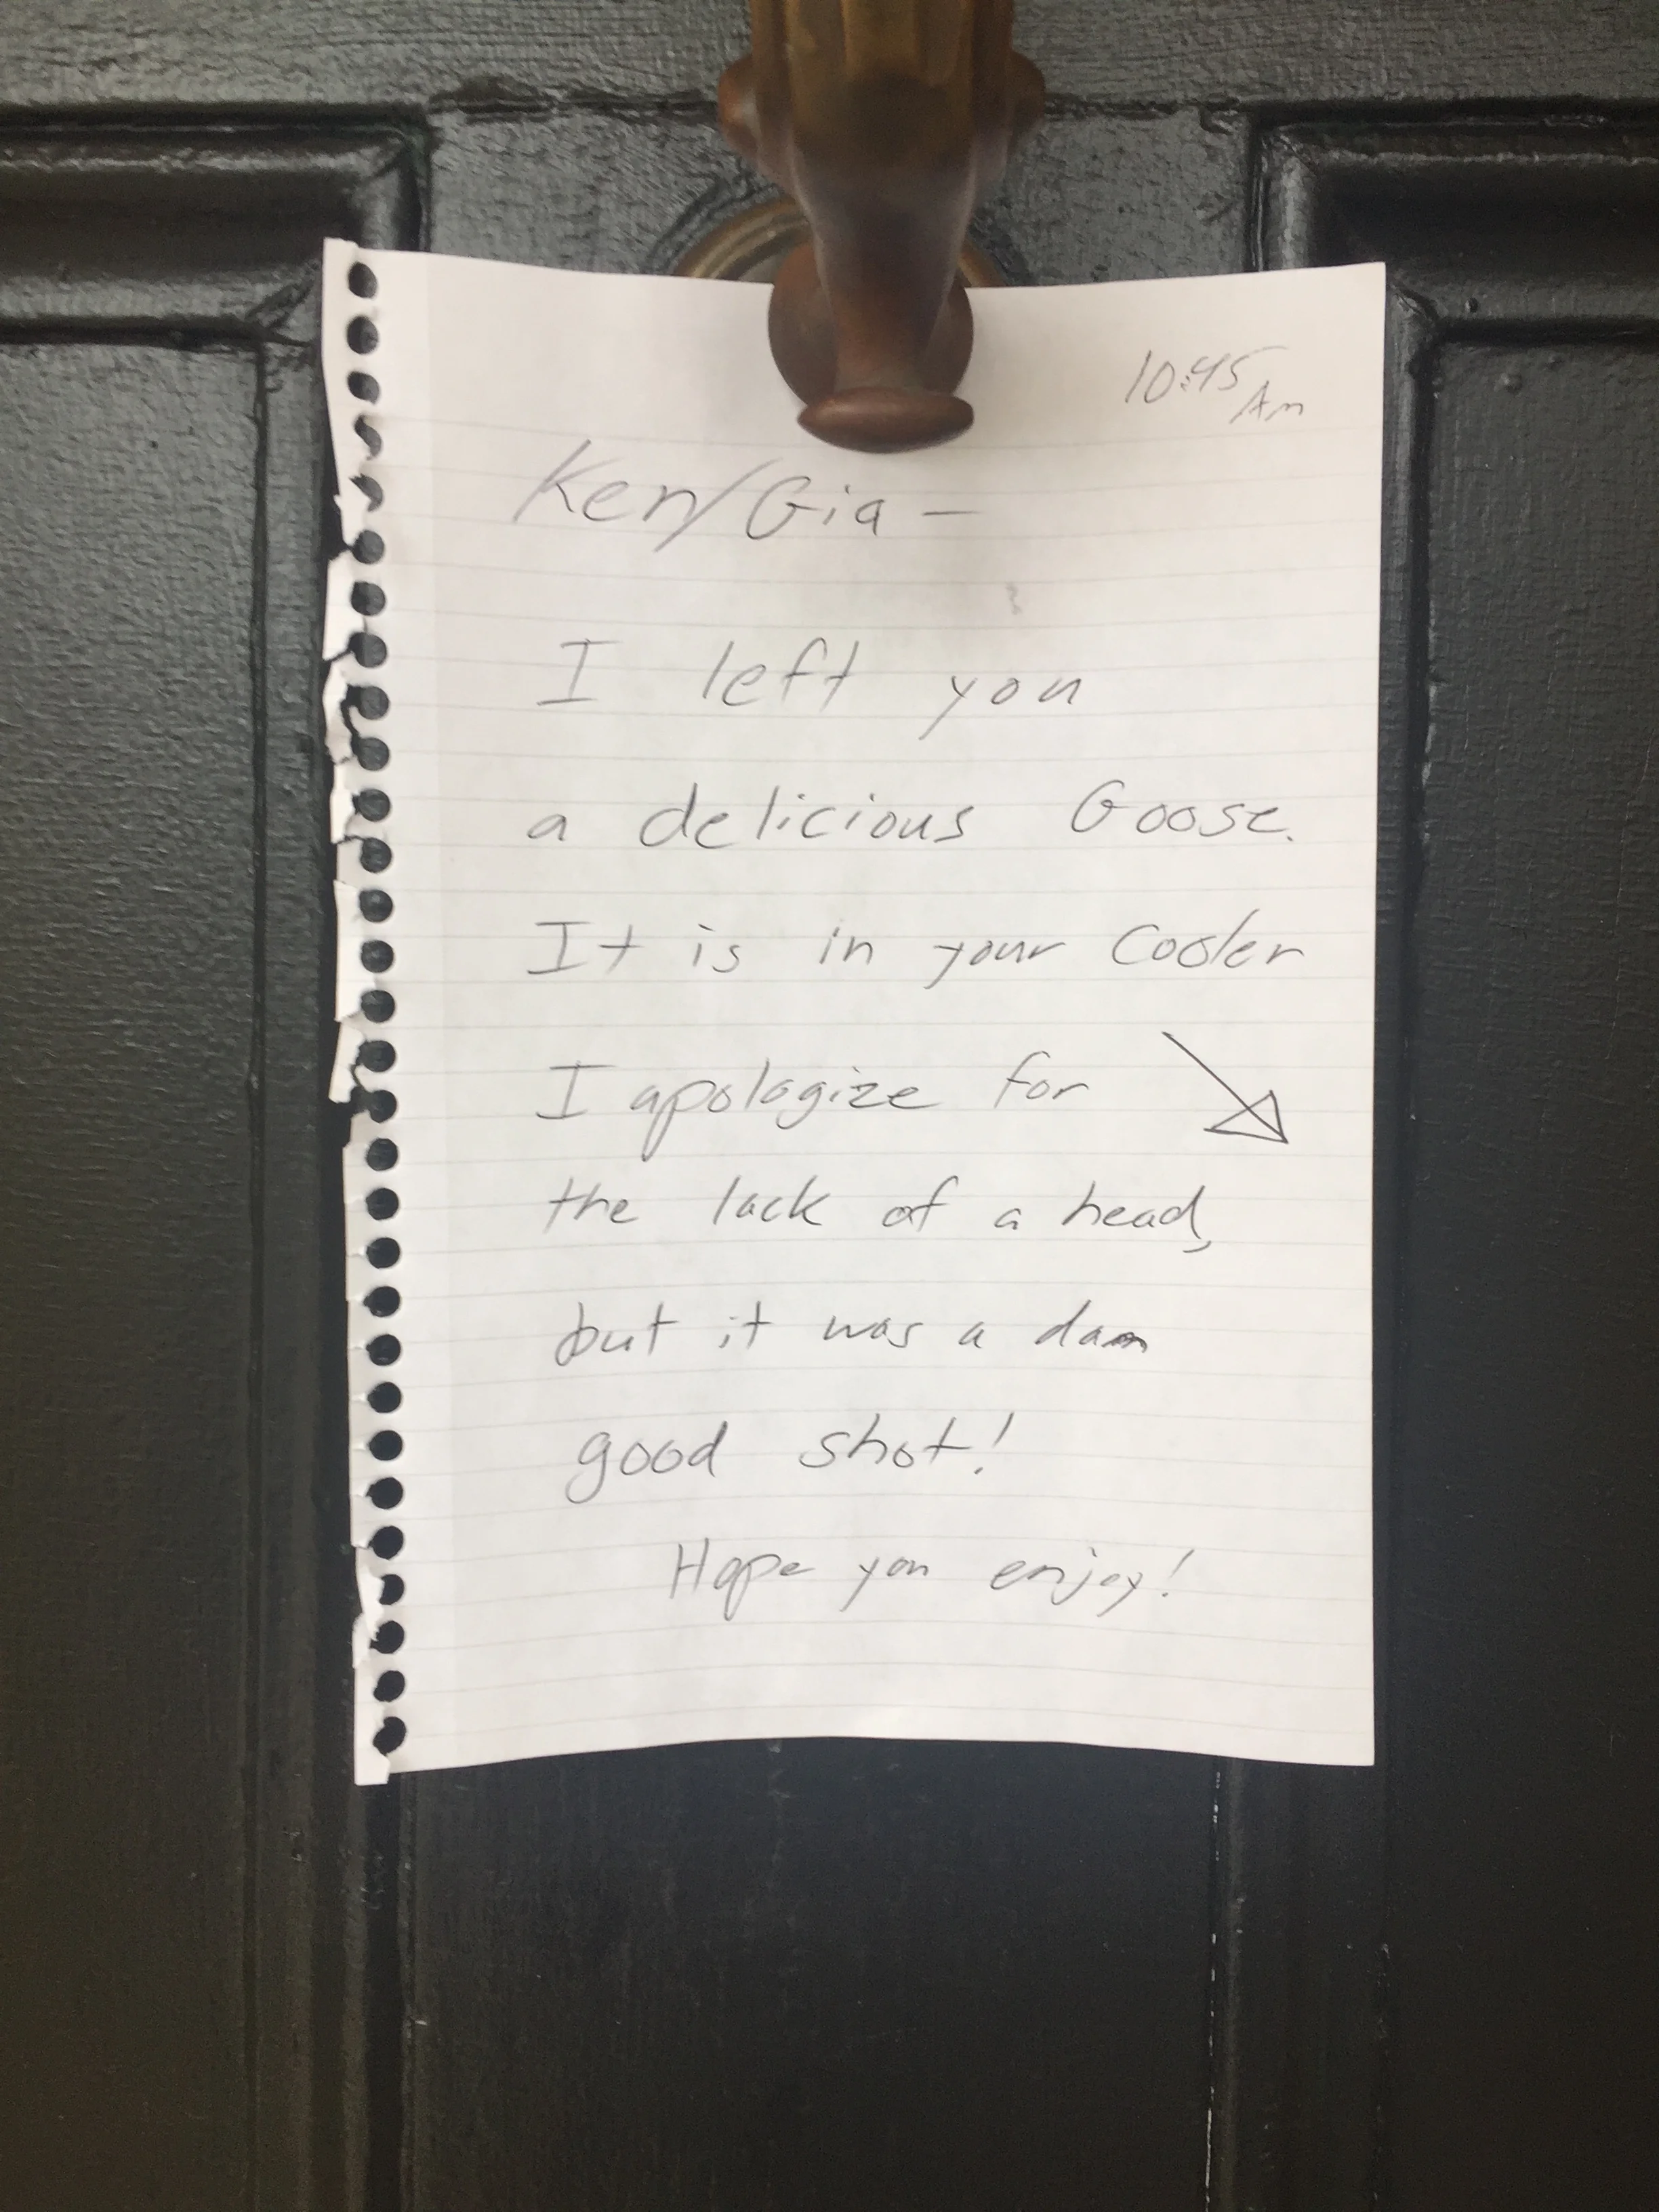 10:45
Am
Ken/Gia -
I left you
a delicious Goose.
It is in your Cooler
I apologize for
the lack of a head,
but it was a dam
good shot!
Hope you enjoy!